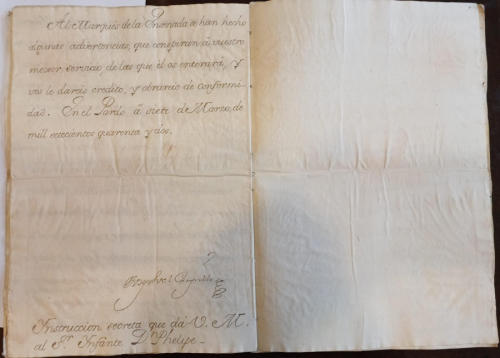 Al Marqués de la Ensenada se han hecho
algunas advertencias, que conspiran à vuestro
mejor servicio, de las que él os enterará, y
vos le daréis credito, y obraréis de conformi-
dad. En el Pardo à siete de Marzo, de
mil setecientos quarenta y dos.
Instruccion secreta que dà V. M.
al Sr. Infante Dn. Phelipe.